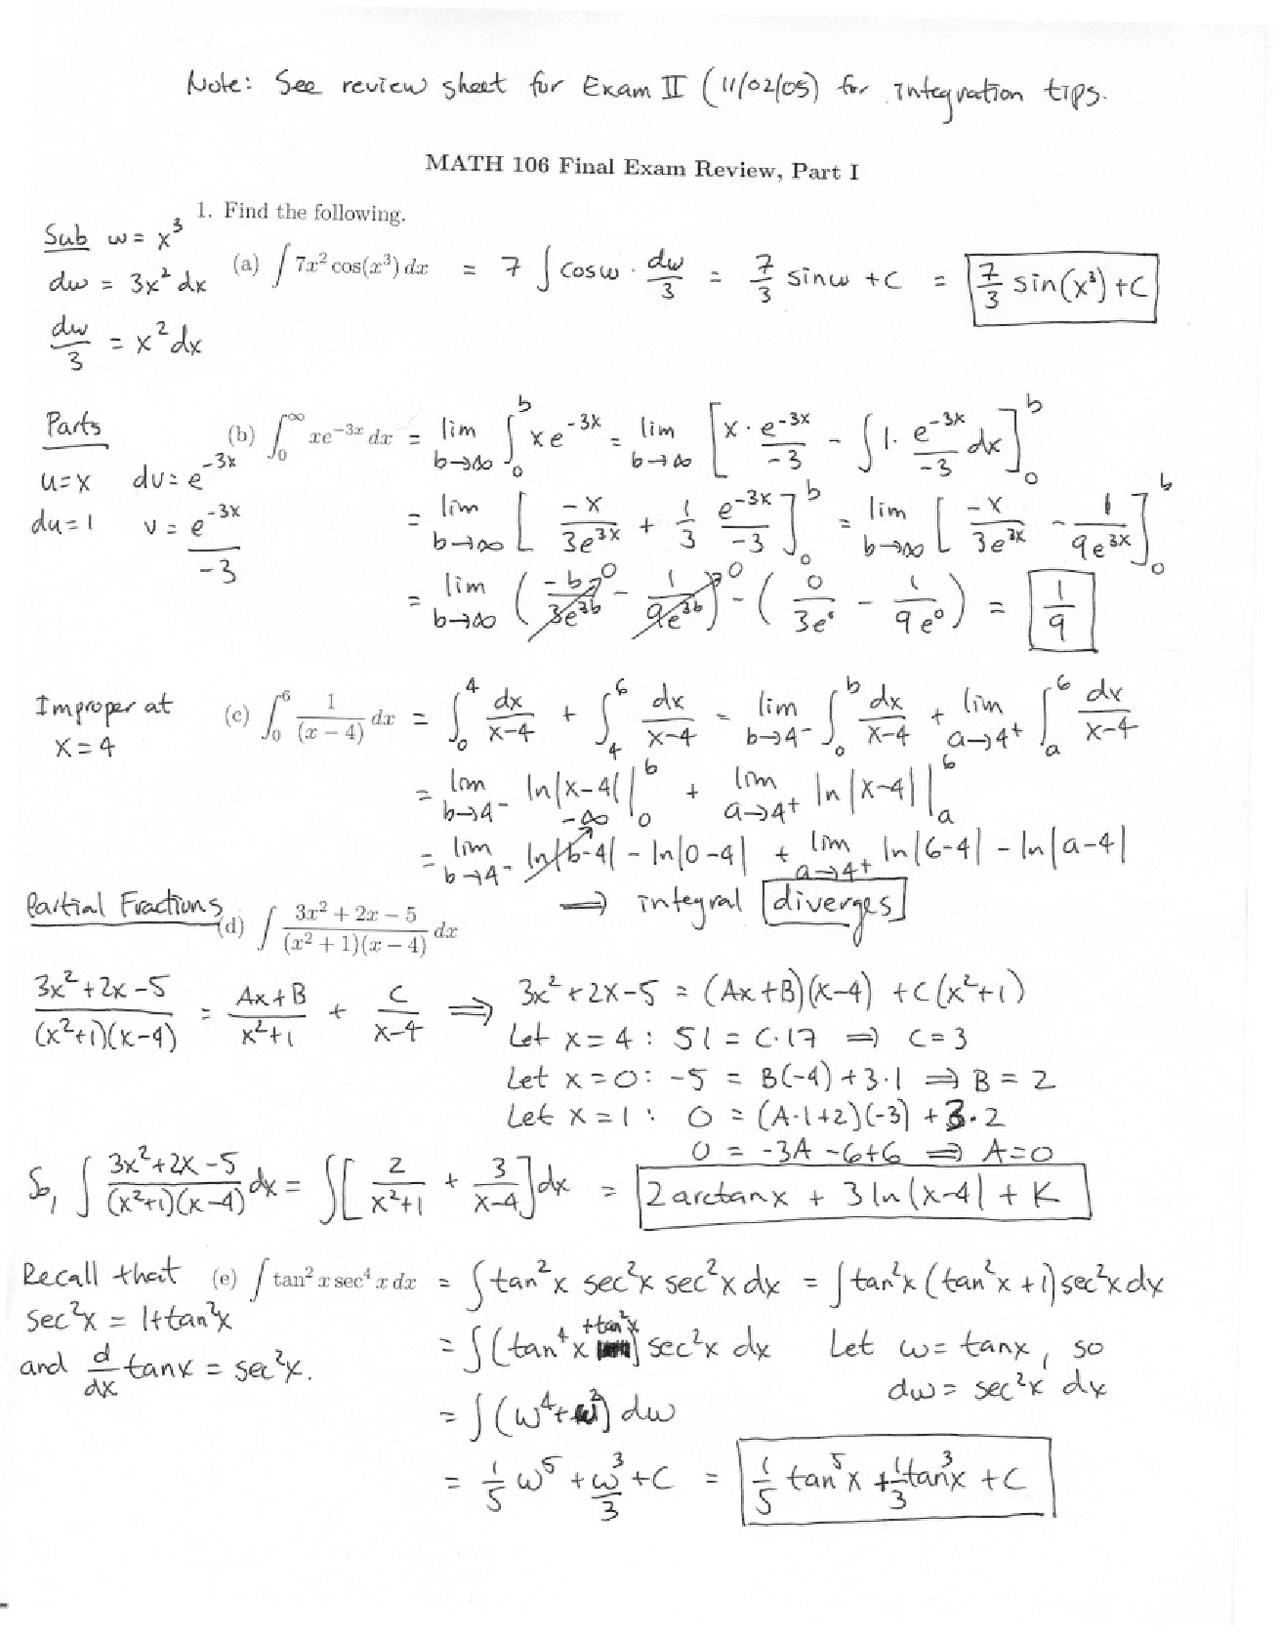 Note: See review sheet for Exam II (11/02/05) for integration tips.
MATH 106 Final Exam Review, Part I
1. Find the following.
Sub w = x³
dw = 3x² dx
dw/3 = x² dx
(a) ∫ 7x² cos(x³) dx = 7 ∫ cos w · dw/3 = 7/3 sin w + C = 7/3 sin(x³) + C
Parts
u = x dv = e^{-3x}
du = 1 v = e^{-3x}/-3
(b) ∫_0^∞ xe^{-3x} dx = lim_{b→∞} ∫_0^b xe^{-3x} = lim_{b→∞} [x · e^{-3x}/-3 - ∫ 1 · e^{-3x}/-3 dx]_0^b
= lim_{b→∞} [-x/3e^{3x} + 1/3 e^{-3x}/-3]_0^b = lim_{b→∞} [-x/3e^{3x} - 1/9e^{3x}]_0^b
= lim_{b→∞} (-b/3e^{3b} →0 - 1/9e^{3b} →0) - (0/3e^0 - 1/9e^0) = 1/9
Improper at
x = 4
(c) ∫_0^6 1/(x - 4) dx = ∫_0^4 dx/x-4 + ∫_4^6 dx/x-4 = lim_{b→4⁻} ∫_0^b dx/x-4 + lim_{a→4⁺} ∫_a^6 dx/x-4
= lim_{b→4⁻} ln|x-4| |_0^b + lim_{a→4⁺} ln|x-4| |_a^6
= lim_{b→4⁻} ln|b-4| →-∞ - ln|0-4| + lim_{a→4⁺} ln|6-4| - ln|a-4|
⇒ integral diverges
Partial Fractions
(d) ∫ 3x² + 2x - 5/(x² + 1)(x - 4) dx
3x²+2x-5/(x²+1)(x-4) = Ax+B/x²+1 + C/x-4 ⇒ 3x²+2x-5 = (Ax+B)(x-4) + C(x²+1)
Let x = 4 : 51 = C·17 ⇒ C = 3
Let x = 0 : -5 = B(-4) + 3·1 ⇒ B = 2
Let x = 1 : 0 = (A·1+2)(-3) + 3·2
0 = -3A - 6+6 ⇒ A = 0
So, ∫ 3x²+2x-5/(x²+1)(x-4) dx = ∫ [2/x²+1 + 3/x-4] dx = 2 arctan x + 3 ln|x-4| + K
Recall that
sec²x = 1+tan²x
and d/dx tan x = sec²x.
(e) ∫ tan² x sec⁴ x dx = ∫ tan²x sec²x sec²x dx = ∫ tan²x (tan²x + 1) sec²x dx
= ∫ (tan⁴x +tan²x) sec²x dx Let w = tan x, so
dw = sec²x dx
= ∫ (w⁴+w²) dw
= 1/5 w⁵ + w³/3 + C = 1/5 tan⁵x + 1/3 tan³x + C